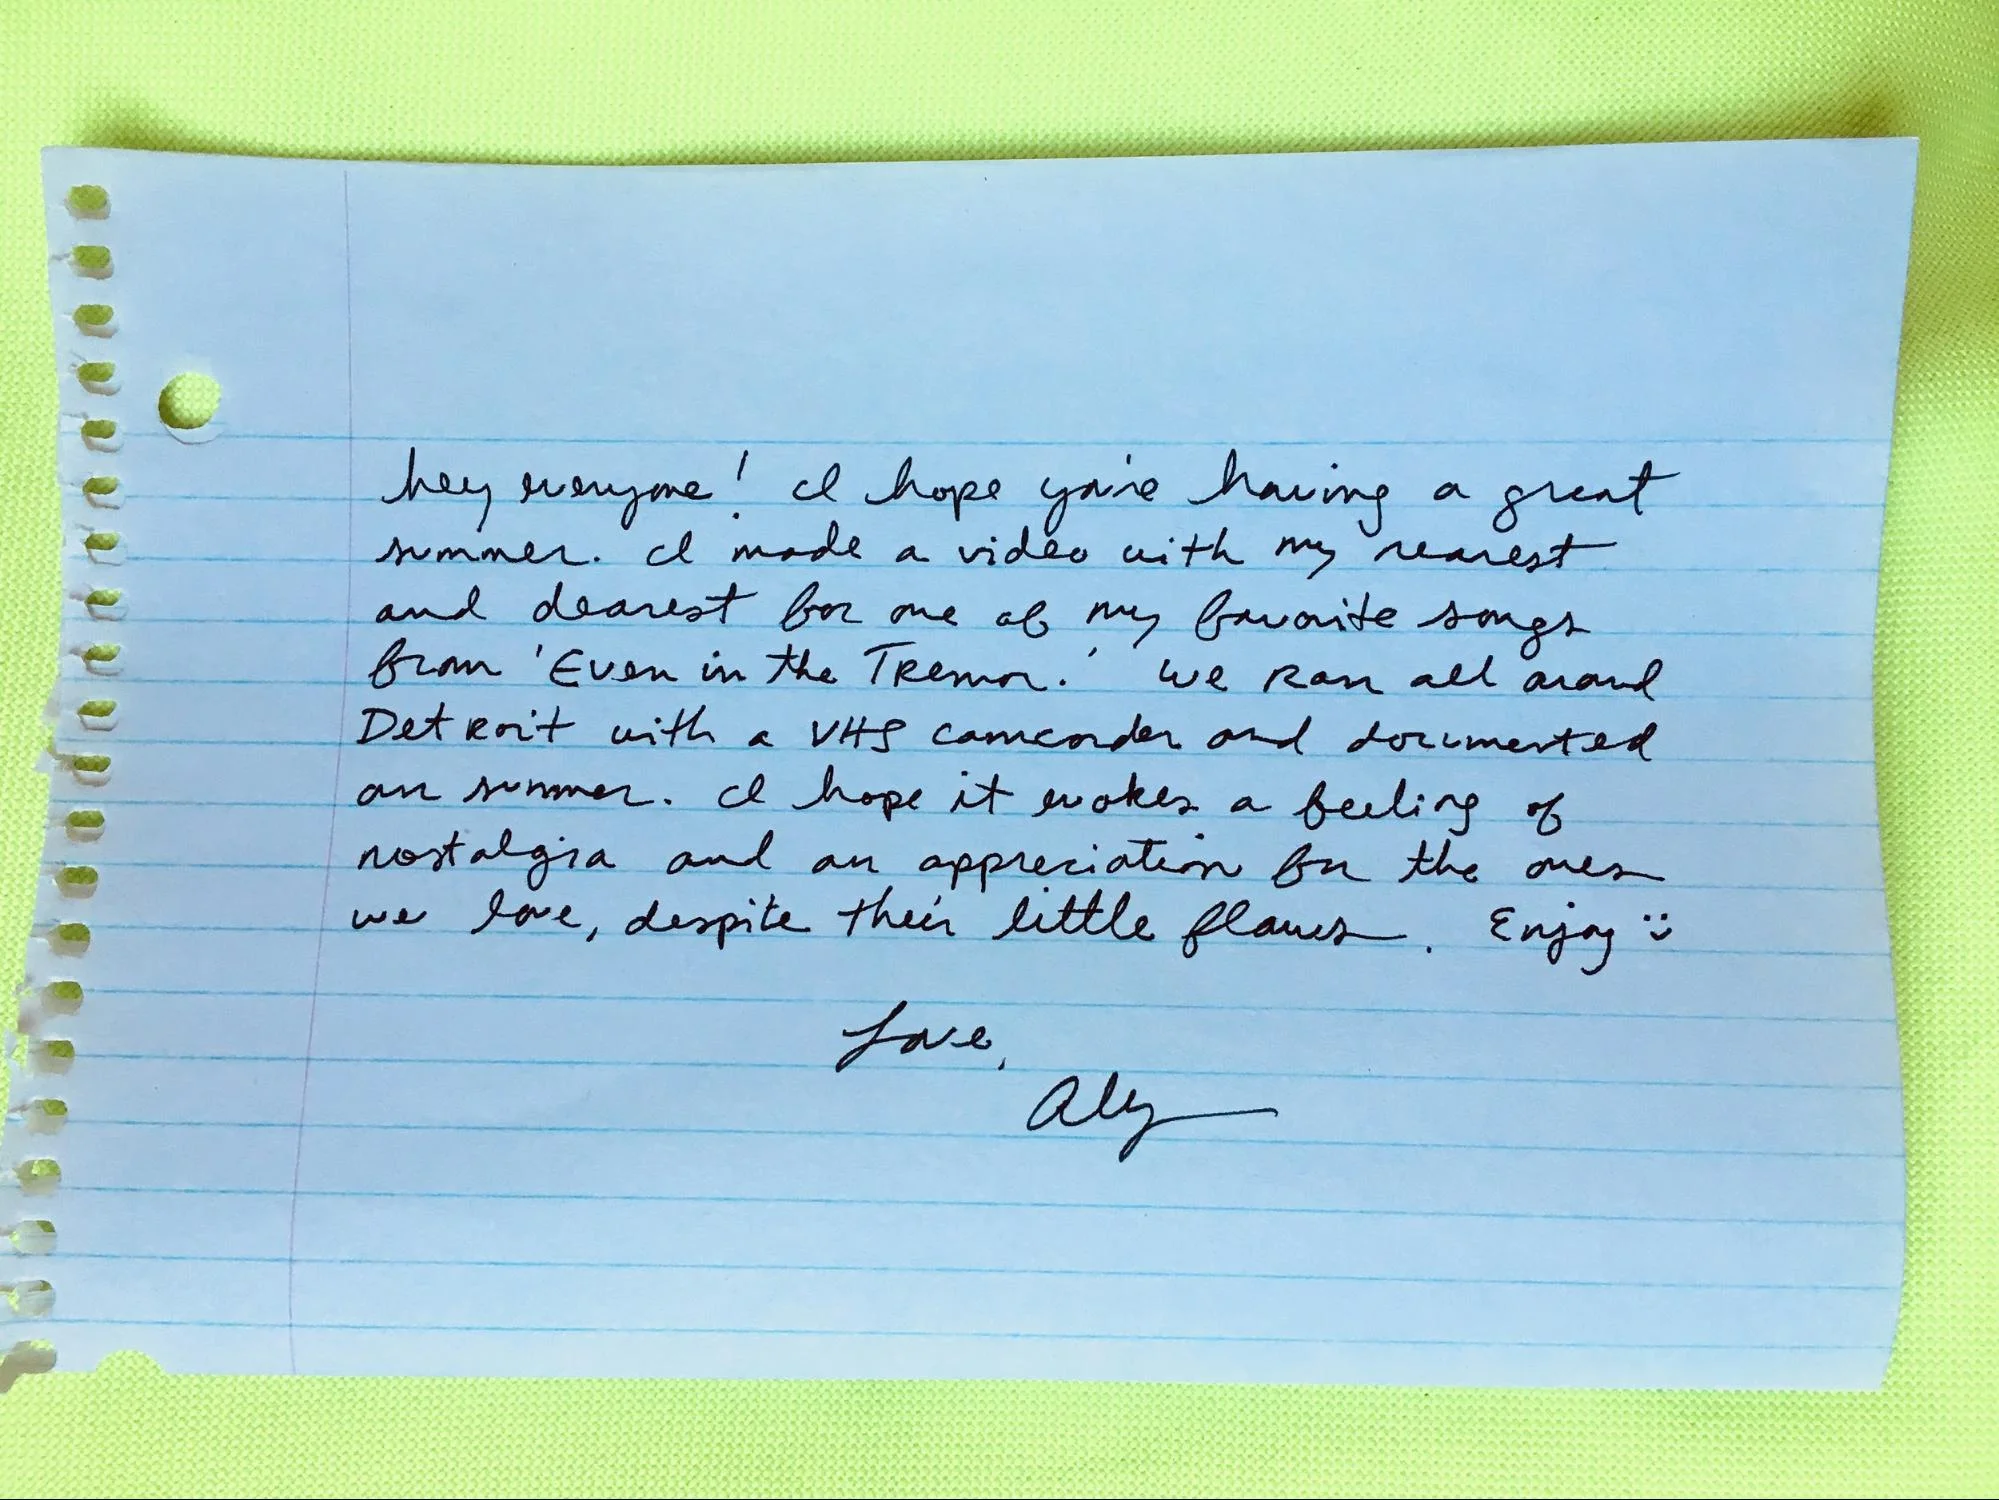 hey everyone! I hope you're having a great
summer. I made a video with my nearest
and dearest for one of my favorite songs
from 'Even in the Tremor.' We ran all around
Detroit with a VHS camcorder and documented
our summer. I hope it evokes a feeling of
nostalgia and an appreciation for the ones
we love, despite their little flaws. Enjoy :)
Love,
Aly